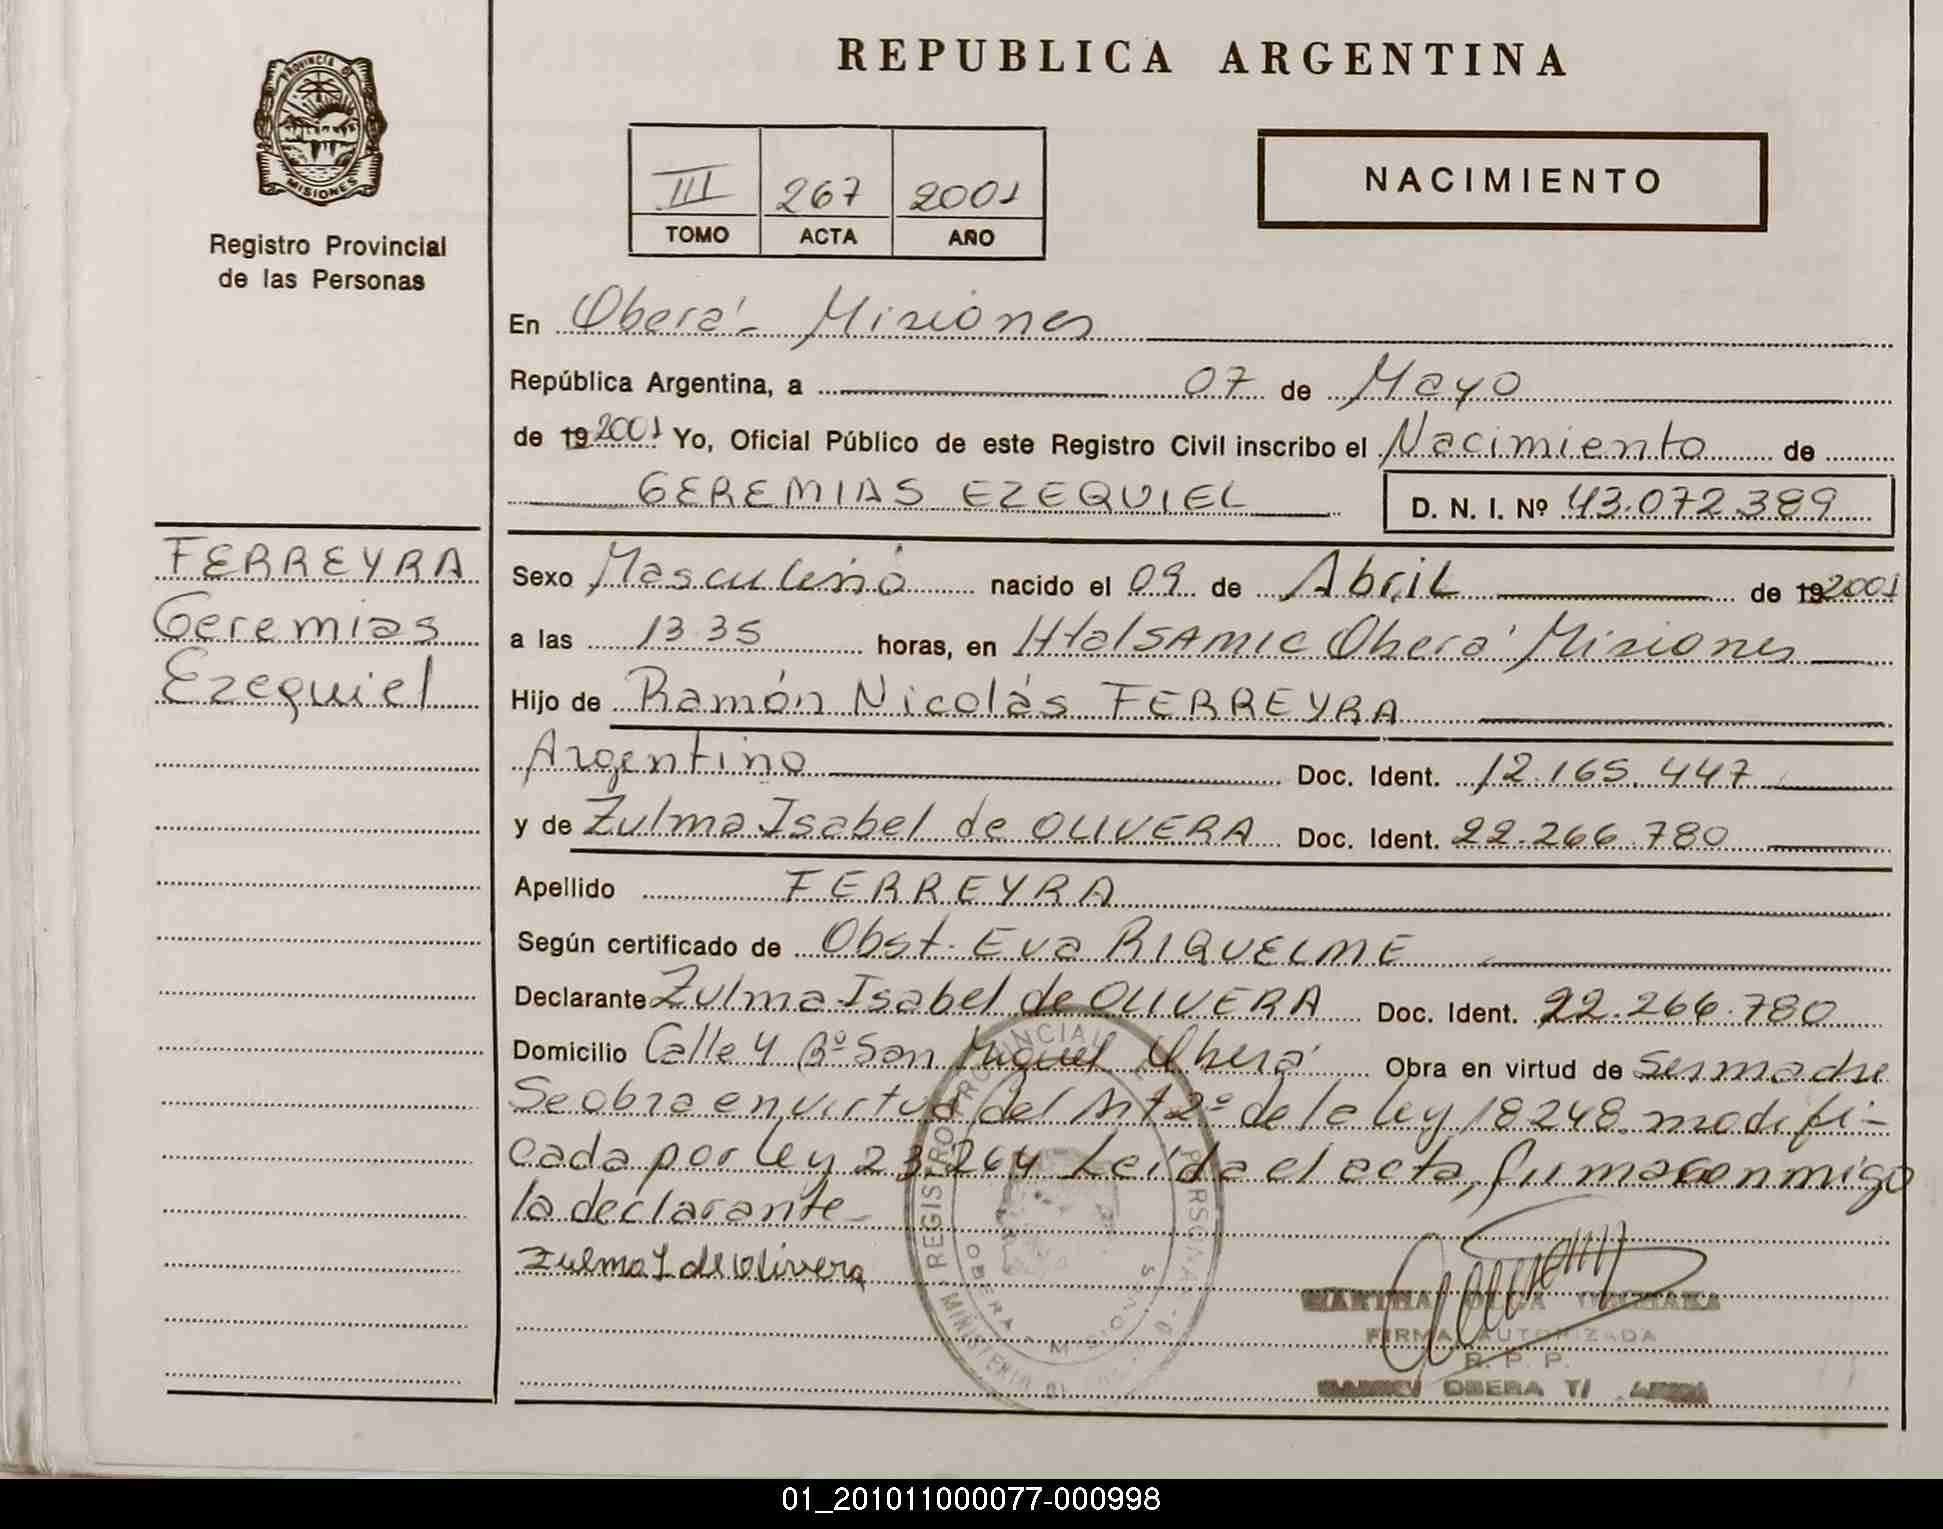 REPUBLICA ARGENTINA
PROVINCIA DE
MISIONES
Registro Provincial
de las Personas
III 267 2001
TOMO ACTA AÑO
NACIMIENTO
En Oberá - Misiones
República Argentina, a 07 de Mayo
de 19 2001 Yo, Oficial Público de este Registro Civil inscribo el Nacimiento de
GEREMIAS EZEQUIEL D. N. I. Nº 43.072.389
FERREYRA
Geremias
Ezequiel
Sexo Masculino nacido el 09 de Abril de 19 2001
a las 13.35 horas, en HtalSAMIC Oberá Misiones
Hijo de Ramón Nicolás FERREYRA
Argentino Doc. Ident. 12.165.447
y de Zulma Isabel de OLIVERA Doc. Ident. 22.266.780
Apellido FERREYRA
Según certificado de Obst. Eva RIQUELME
Declarante Zulma Isabel de OLIVERA Doc. Ident. 22.266.780
Domicilio Calle 4 Bº San Miguel Oberá Obra en virtud de ser madre
Se obra en virtud del Art 2º de la ley 18248 modifi-
cada por ley 23.264 Leída el acta, firma conmigo
la declarante
Zulma I de Olivera
REGISTRO PROVINCIAL
OBERA - MISIONES
MARTHA OLGA
FIRMA AUTORIZADA
R. P. P.
OBERA
01_201011000077-000998